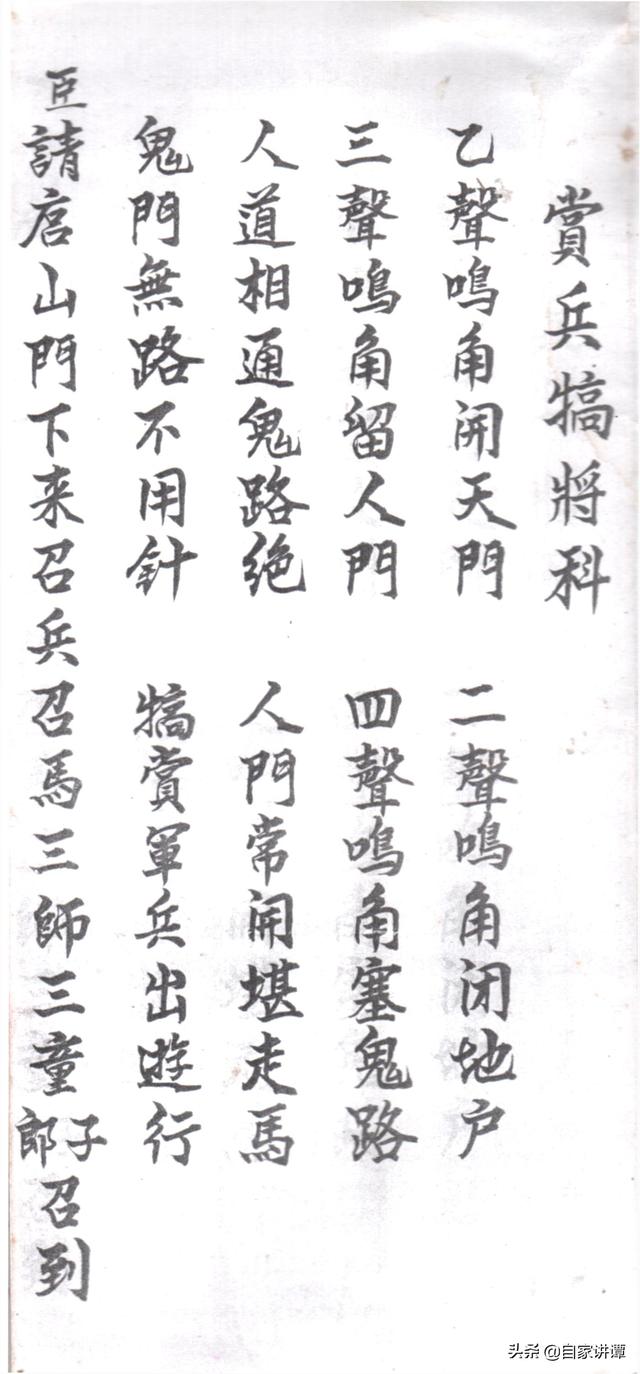 賞兵犒將科
乙聲鳴角開天門 二聲鳴角闭地户
三聲鳴角留人門 四聲鳴角塞鬼路
人道相通鬼路绝 人門常開堪走馬
鬼門無路不用針 犒賞軍兵出遊行
臣請山門下来召兵召馬三師三童子郎召到
头条 @自家讲谭